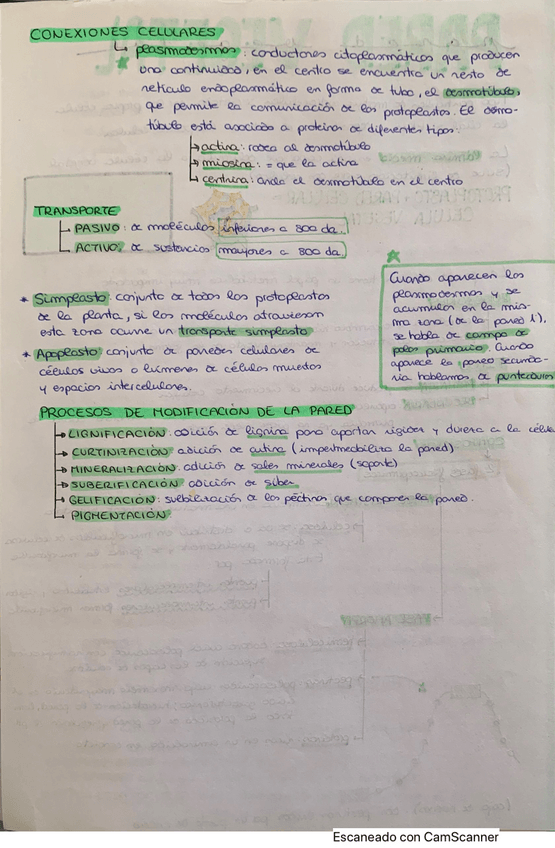 CONEXIONES CELULARES
plasmodesmos: conductores citoplasmáticos que producen
una continuidad, en el centro se encuentra un resto de
retículo endoplasmático en forma de tubo, el desmotúbulo,
que permite la comunicación de los protoplastos. El desmo-
túbulo está asociado a proteínas de diferentes tipos:
actina: rodea al desmotúbulo
miosina: = que la actina
centrina: ancla el desmotúbulo en el centro
TRANSPORTE
PASIVO: de moléculas inferiores a 800 da.
ACTIVO: de sustancias mayores a 800 da.
Cuando aparecen los
plasmodesmos y se
acumulan en la mis-
ma zona (de la pared 1ª),
se habla de campo de
poros primario. Cuando
aparece la pared secunda-
ria hablamos de punteaduras
* Simplasto: conjunto de todos los protoplastos
de la planta, si las moléculas atraviesan
esta zona ocurre un transporte simplasto
* Apoplasto: conjunto de paredes celulares de
células vivas o lúmenes de células muertas
y espacios intercelulares.
PROCESOS DE MODIFICACIÓN DE LA PARED
LIGNIFICACIÓN: adición de lignina para aportar rigidez y dureza a la célula
CURTINIZACIÓN: adición de cutina (impermeabiliza la pared)
MINERALIZACIÓN: adición de sales minerales (soporte)
SUBERIFICACIÓN: adición de súber
GELIFICACIÓN: solubilización de las pectinas que componen la pared.
PIGMENTACIÓN
Escaneado con CamScanner